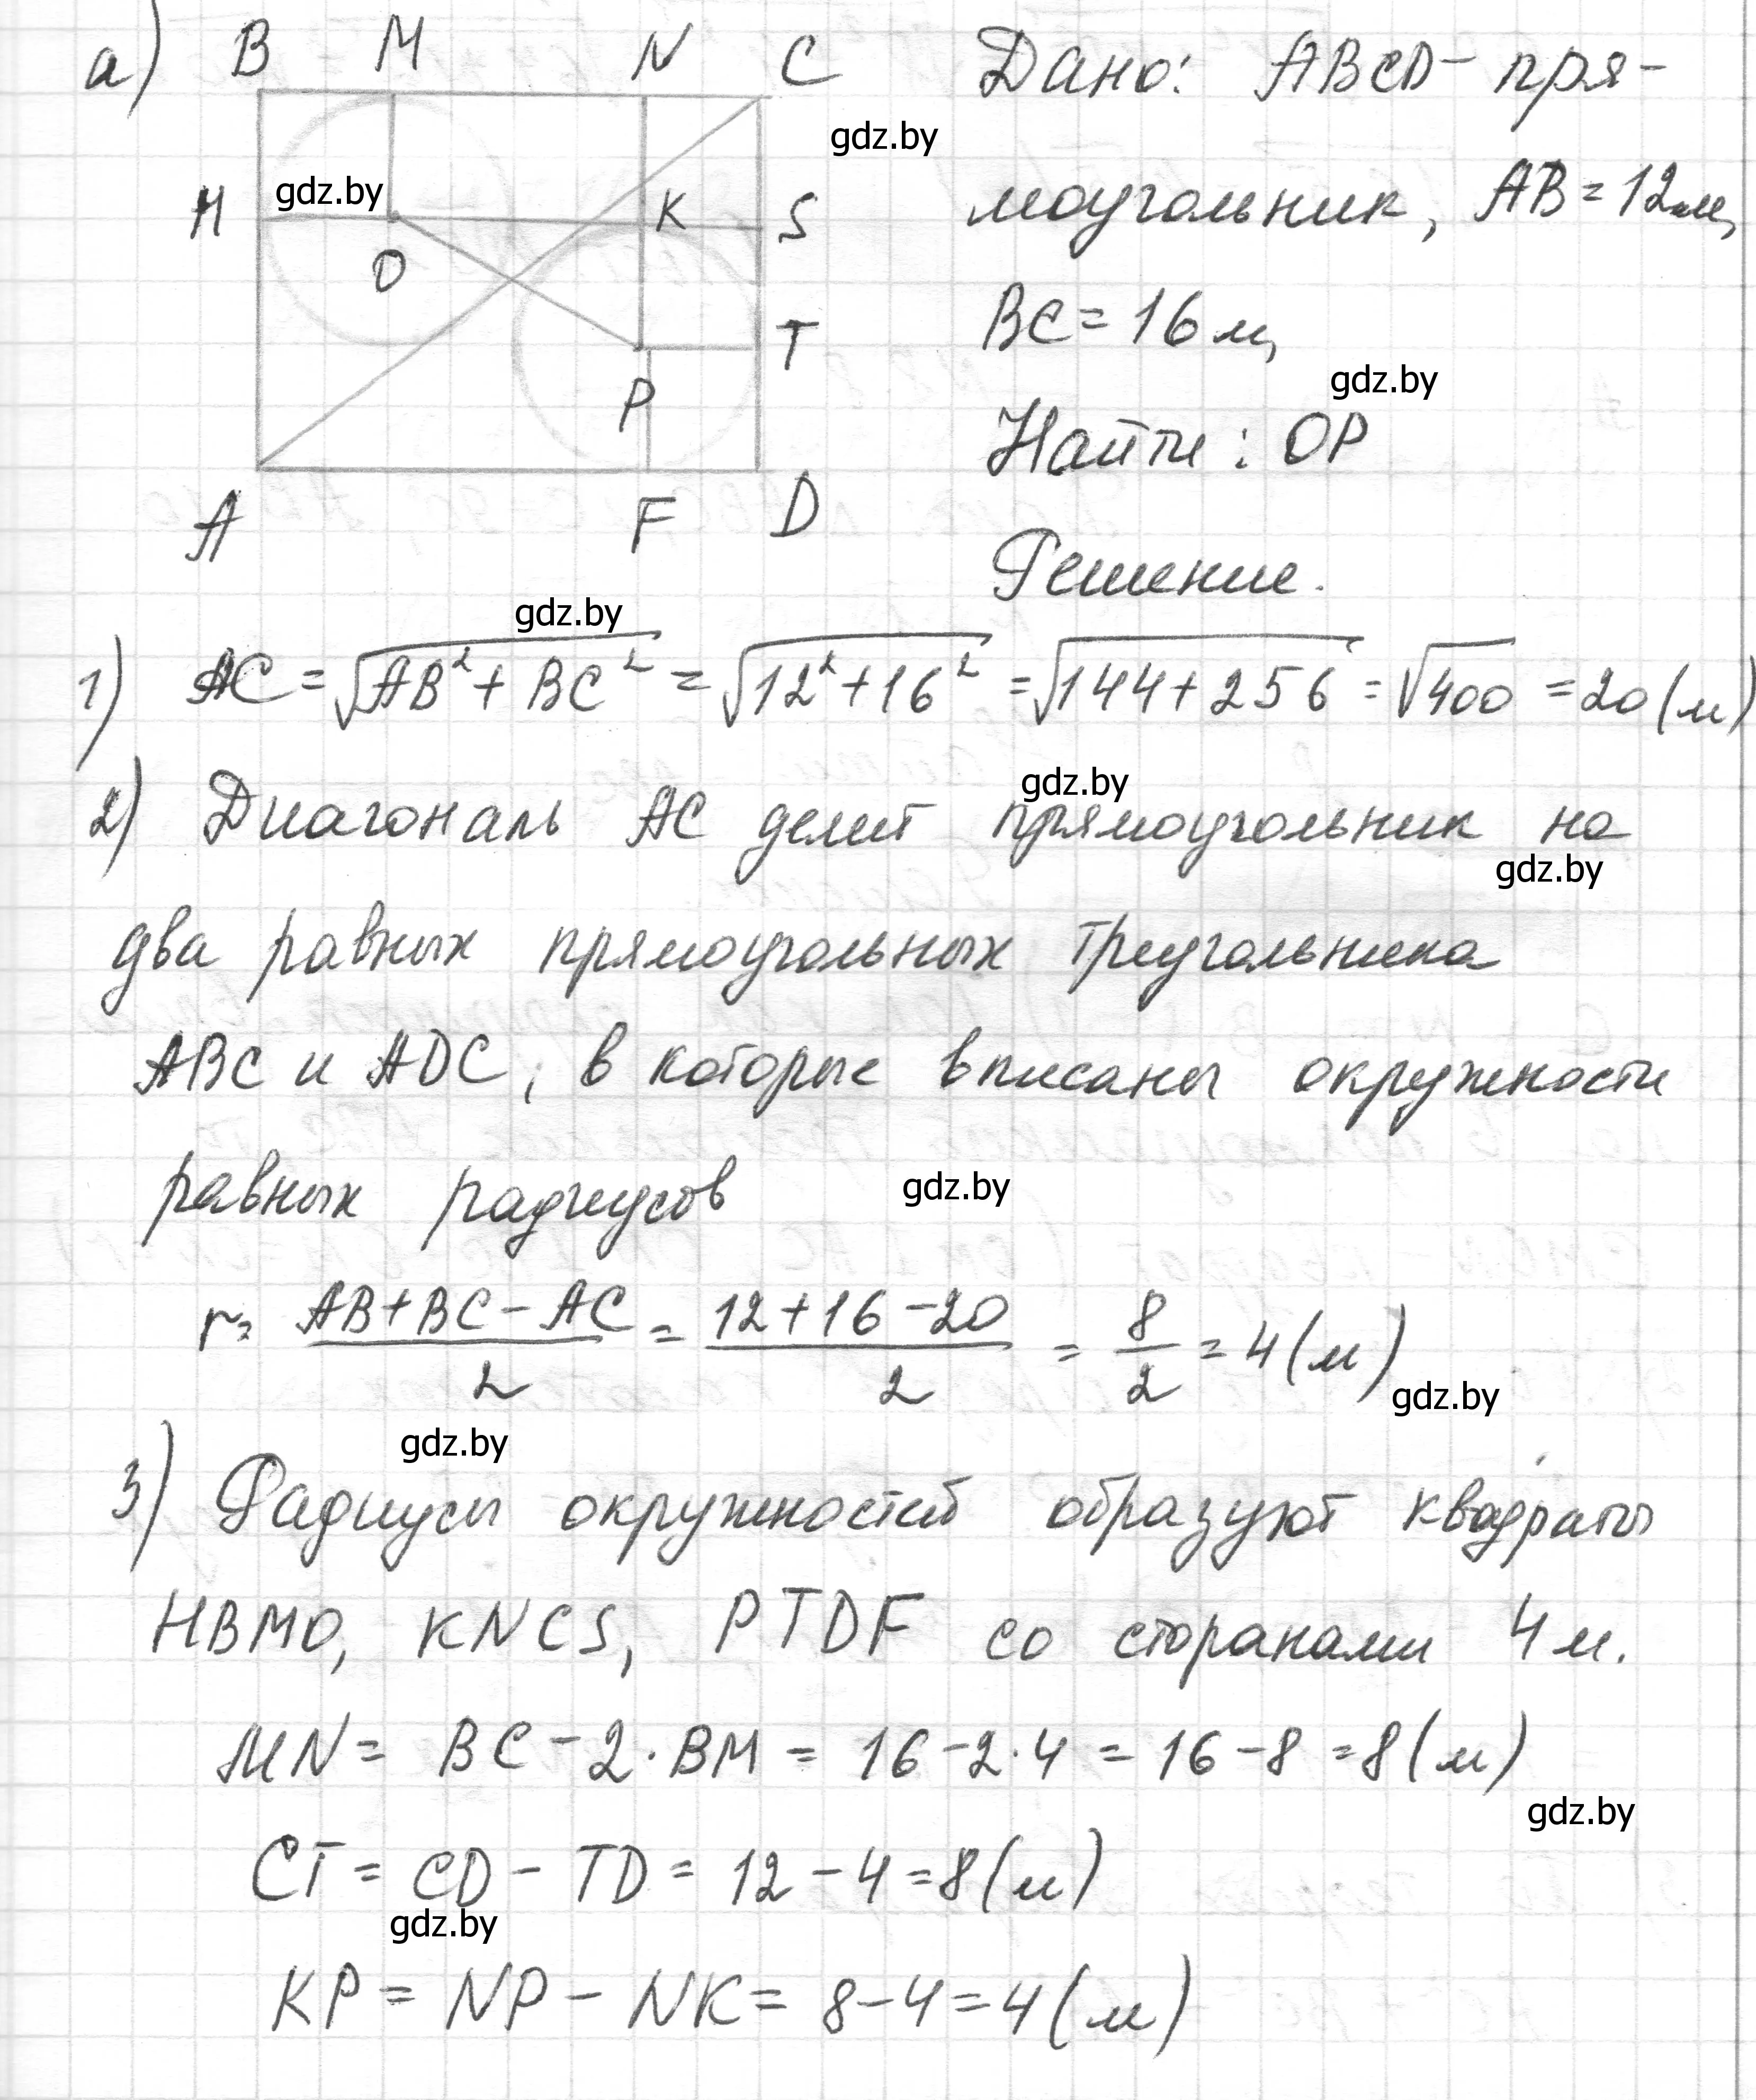 а) B M N C Дано: ABCD - пря-
gdz.by
gdz.by
H K S моугольник, AB = 12м,
O BC = 16 м,
T
gdz.by
P Найти: OP
A F D
Решение.
gdz.by
1) AC = √AB² + BC² = √12² + 16² = √144 + 256 = √400 = 20 (м)
gdz.by
2) Диагональ AC делит прямоугольник на
gdz.by
два равных прямоугольных треугольника
ABC и ADC, в которые вписаны окружности
равных радиусов gdz.by
r = AB + BC - AC / 2 = 12 + 16 - 20 / 2 = 8 / 2 = 4 (м)
gdz.by
gdz.by
3) Радиусы окружностей образуют квадраты
HBMO, KNCS, PTDF со сторонами 4 м.
MN = BC - 2 · BM = 16 - 2 · 4 = 16 - 8 = 8 (м)
gdz.by
CT = CD - TD = 12 - 4 = 8 (м)
gdz.by
KP = NP - NK = 8 - 4 = 4 (м)